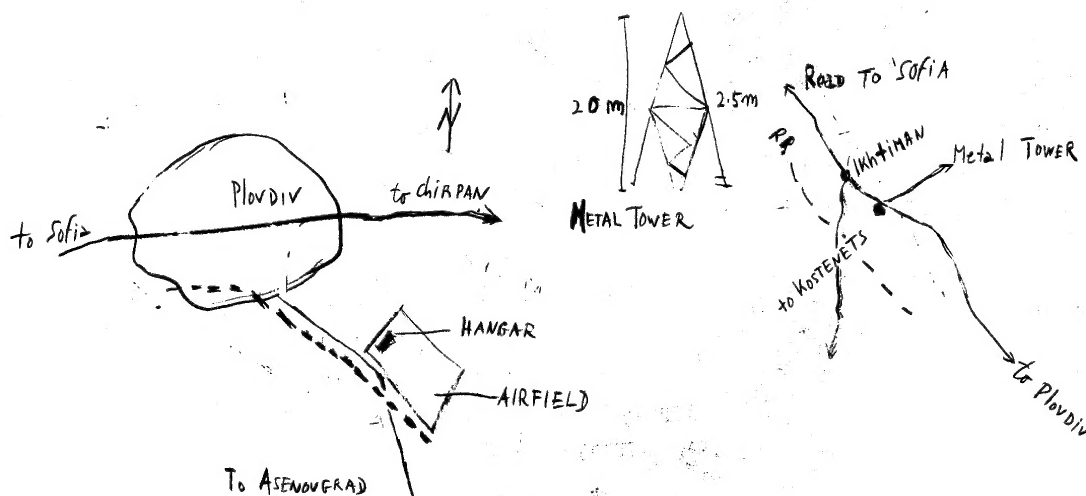 N
PLOVDIV
to Sofia
to CHIRPAN
HANGAR
AIRFIELD
To ASENOVGRAD
20 m
2.5m
METAL TOWER
ROAD TO SOFIA
RR
IKhtiMAN
Metal TOWER
to KOSTENETS
to PLOVDIV